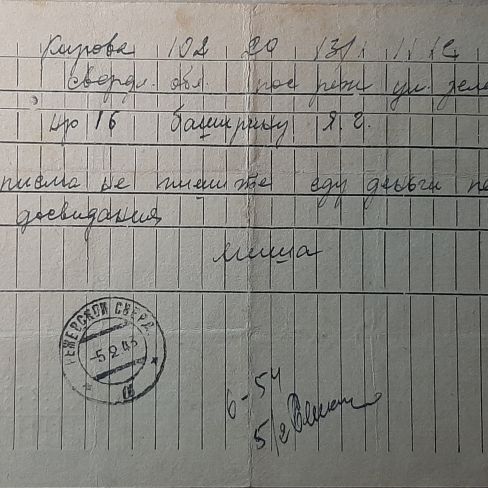 Кирова 102 20 13/1 11 12
Свердл. обл. пос реж ул. зеле
нр 16 башкрину Я. Г.
письма не пишите еду деньги по
досвидания
Миша
РЕЖЕВСКОЙ СВЕРД.
-5.2.43
6-54
5/2